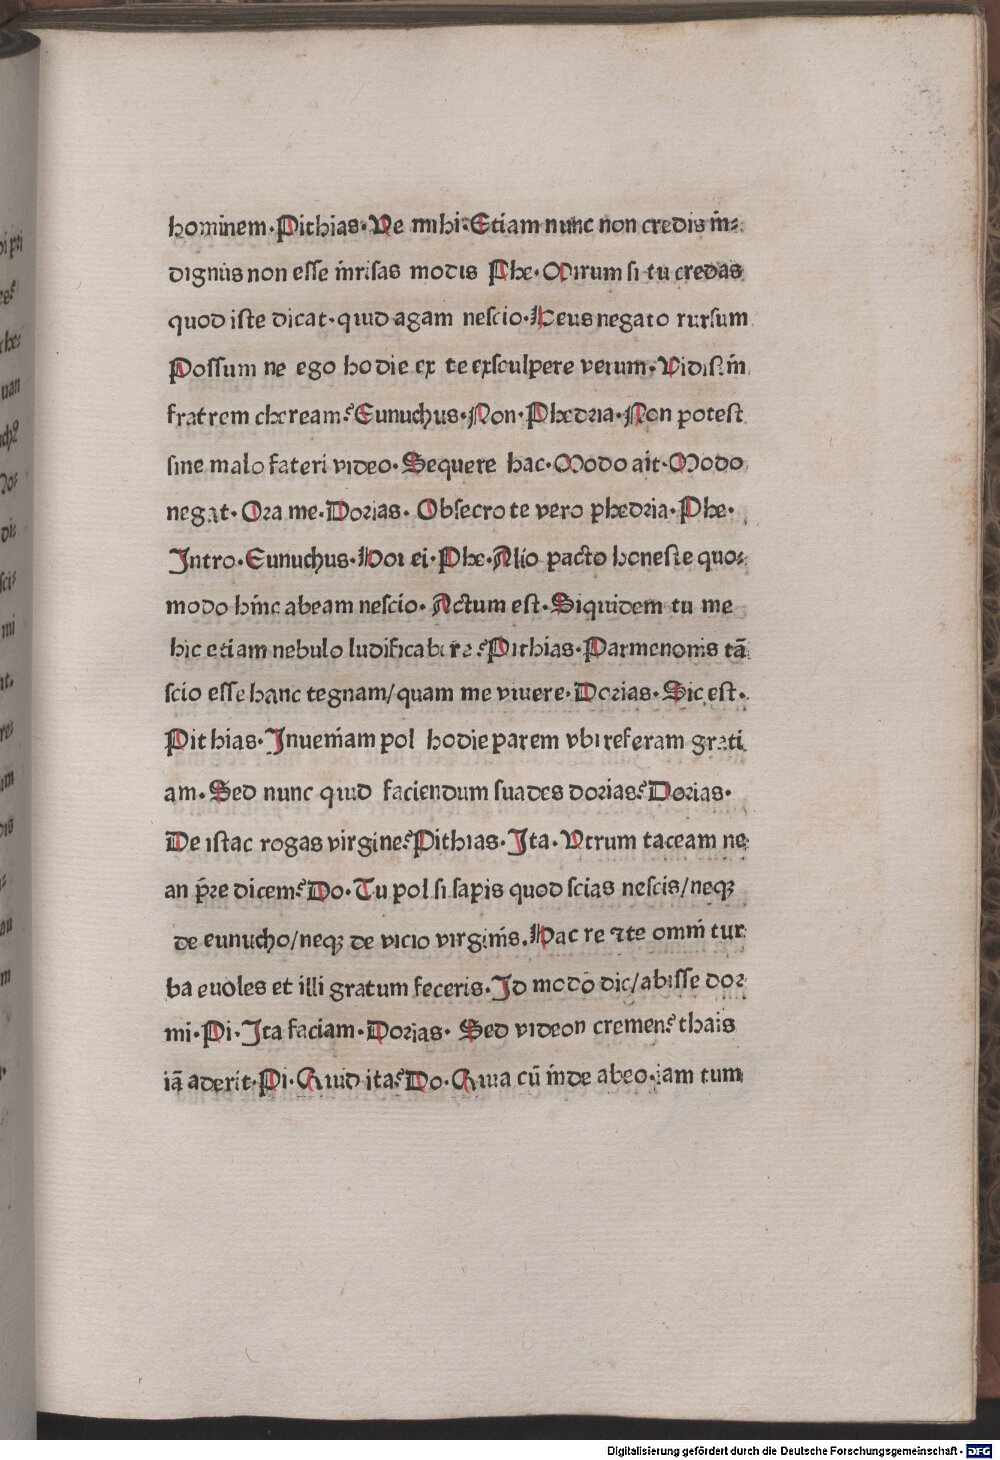 hominem·Pithias·Ve mihi·Etiam nunc non credis in-
dignus non esse inrisas modis Phe·Mirum si tu credas
quod iste dicat·quid agam nescio·Heus negato rursum
Possum ne ego hodie ex te exsculpere verum·Vidistin
fratrem cheream? Eunuchus·Non·Phedria·Non potest
sine malo fateri video·Sequere hac·Modo ait·Modo
negat·Ora me·Dorias· Obsecro te vero phedria·Phe·
Intro·Eunuchus·Hoi ei·Phe·Alio pacto honeste quo-
modo hinc abeam nescio·Actum est·Siquidem tu me
hic etiam nebulo ludificabere? Pithias·Parmenonis tā
scio esse hanc tegnam/quam me vivere·Dorias·Sic est·
Pithias·Inueniam pol hodie parem vbi referam grati
am·Sed nunc quid faciendum suades dorias? Dorias·
De istac rogas virgine? Pithias·Ita·Vtrum taceam ne
an p̄re dicem? Do·Tu pol si sapis quod scias nescis/neqꝫ
de eunucho/neqꝫ de vicio virginis.Hac re ⁊ te omni tur
ba euoles et illi gratum feceris·Id modo dic/abisse dor
mi·Pi·Ita faciam·Dorias· Sed videon cremen? thais
iā aderit·Pi·Quid ita? Do·Quia cū inde abeo·iam tum
Digitalisierung gefördert durch die Deutsche Forschungsgemeinschaft - DFG